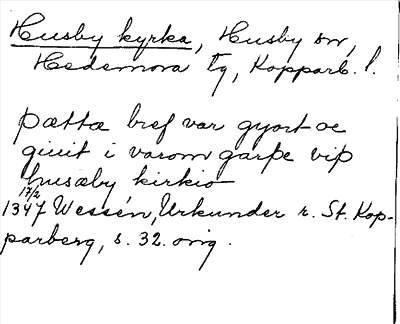 Husby kyrka, Husby sn,
Hedemora tg, Kopparb. l.
þættæ bref var gyort oc
giuit i varom garþe viþ
husaby kirkio
17/2
1347 Wessén, Urkunder r. St. Kop-
parberg, s. 32. orig.